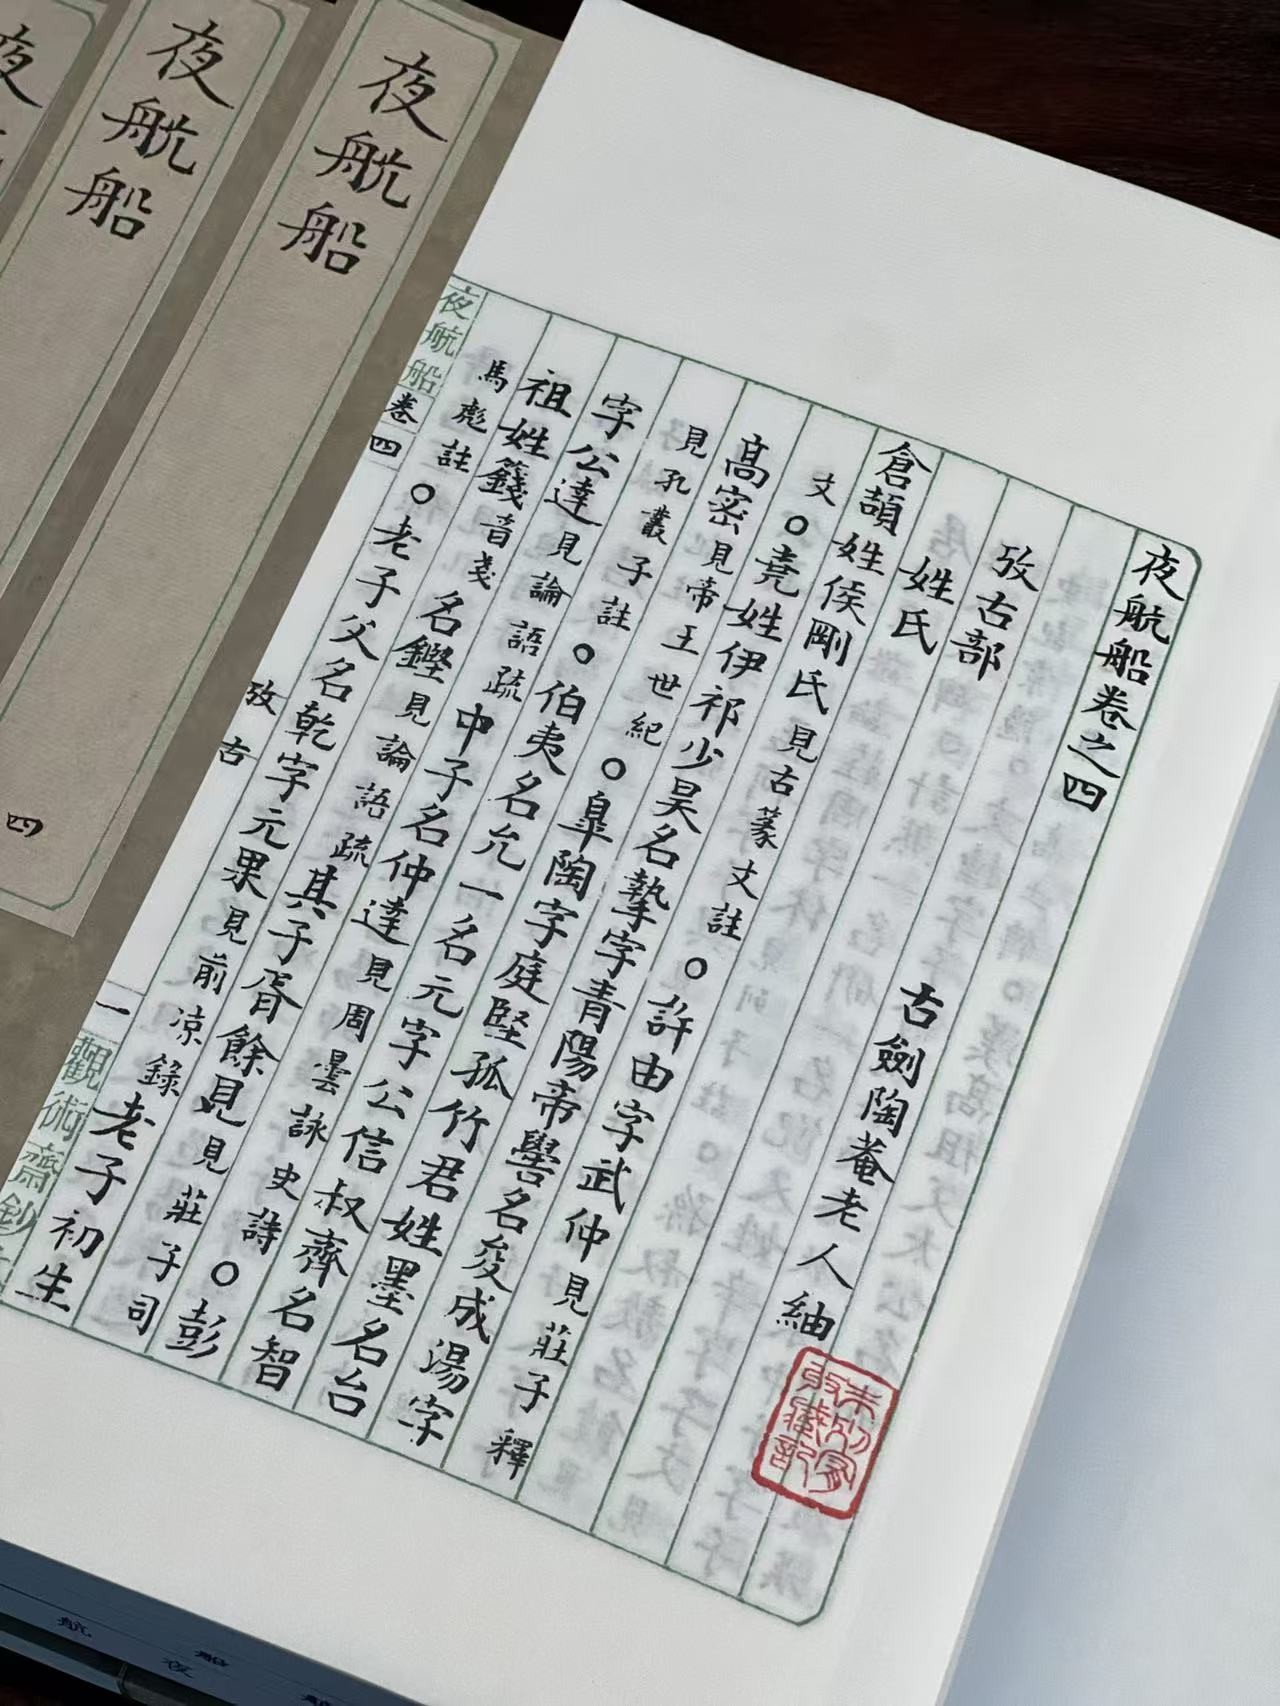 夜航船卷之四
攷古部
古劍陶菴老人紬
姓氏
倉頡姓侯剛氏見古篆文註○許由字武仲見莊子釋
文○堯姓伊祁少昊名摯字青陽帝嚳名夋成湯字
高密見帝王世紀○皐陶字庭堅孤竹君姓墨名台
見孔叢子註○伯夷名允一名元字公信叔齊名智
字公達見論語疏中子名仲達見周曇詠史詩○彭
祖姓籛音戔名鏗見論語疏其子胥餘見見莊子司
馬彪註○老子父名乾字元果見前凉錄老子初生
夜航船卷四
攷古
一
觀術齋鈔
夜航船
四
夜航船